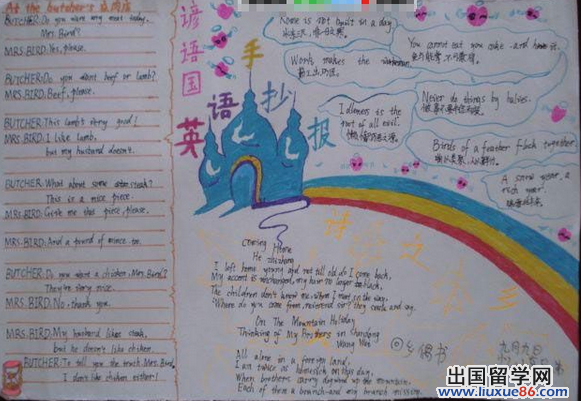 At the butcher's 在肉店
BUTCHER: Do you want any meat today,
Mrs. Bird?
MRS. BIRD: Yes, please.
BUTCHER: Do you want beef or lamb?
MRS. BIRD: Beef, please.
BUTCHER: This lamb's very good!
MRS. BIRD: I like lamb,
but my husband doesn't.
BUTCHER: What about some steak?
This is a nice piece.
MRS. BIRD: Give me that piece, please.
MRS. BIRD: And a pound of mince, too.
BUTCHER: Do you want a chicken, Mrs. Bird?
They're very nice.
MRS. BIRD: No, thank you.
MRS. BIRD: My husband likes steak,
but he doesn't like chicken.
BUTCHER: To tell you the truth Mrs. Bird,
I don't like chicken either!
谚语国
英语手抄报
Rome is not built in a day
Words makes the
You cannot eat your cake and have it.
Never do things by halves.
Idleness is the
root of all evil.
Birds of a feather flock together
物以类聚,人以群分.
A snow year, a
rich year.
瑞雪兆丰年.
Coming Home
He Zhizhang
I left home young and not till old do I come back,
My accent is unchanged, my hair no longer black.
The children don't know me, whom I meet on the way,
"Where do you come from, reverend sir?" they smile and say.
On The Mountain Holiday
Thinking of My Brothers in Shandong
Wang Wei
All alone in a foreign land,
I am twice as homesick on this day,
When brothers carry dogwood up the mountain,
Each of them a branch—and my branch missing.
回乡偶书
九月九日
出国留学网
www.liuxue86.com